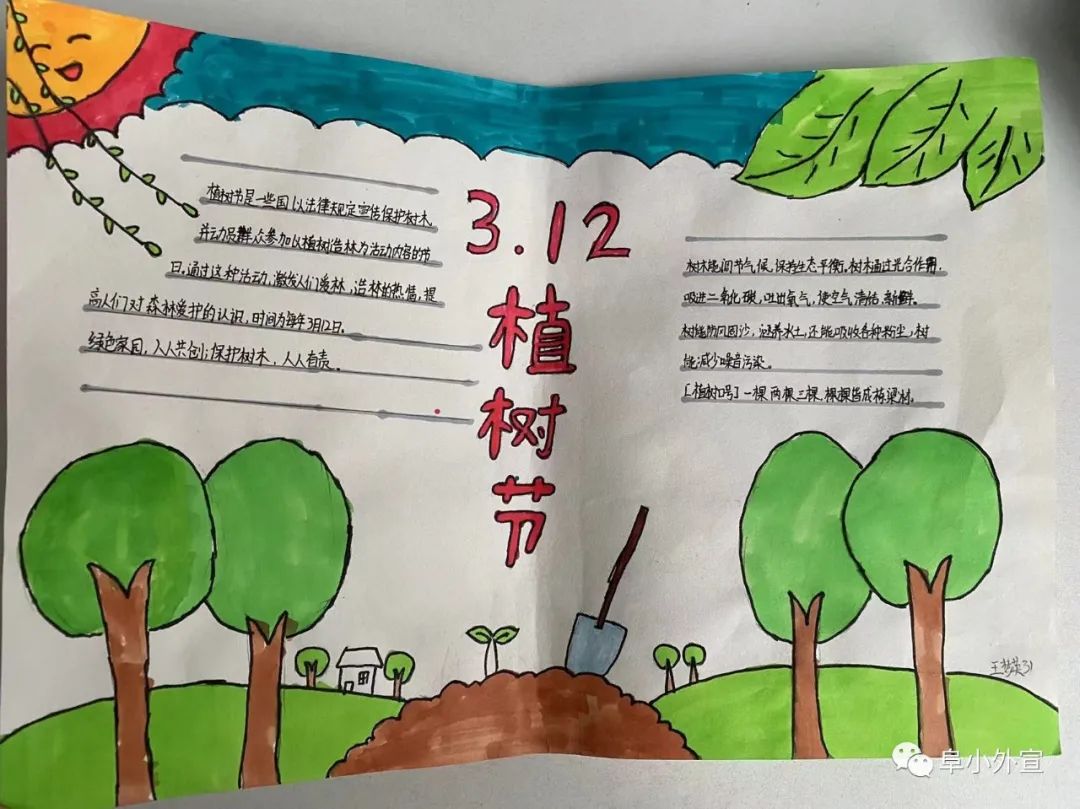 植树节是一些国以法律规定宣传保护树木,
并动员群众参加以植树造林为活动内容的节
日。通过这种活动,激发人们爱林,造林的热情,提
高人们对森林爱护的认识,时间为每年3月12日。
绿色家园,人人共创;保护树木,人人有责。
3.12
植
树
节
树木能调节气候,保持生态平衡。树木通过光合作用,
吸进二氧化碳,吐出氧气,使空气清洁、新鲜。
树能防风固沙,涵养水土,还能吸收各种粉尘,树
能减少噪音污染。
[植树口号]一棵 两棵 三棵,棵棵皆成栋梁材。
阜小外宣